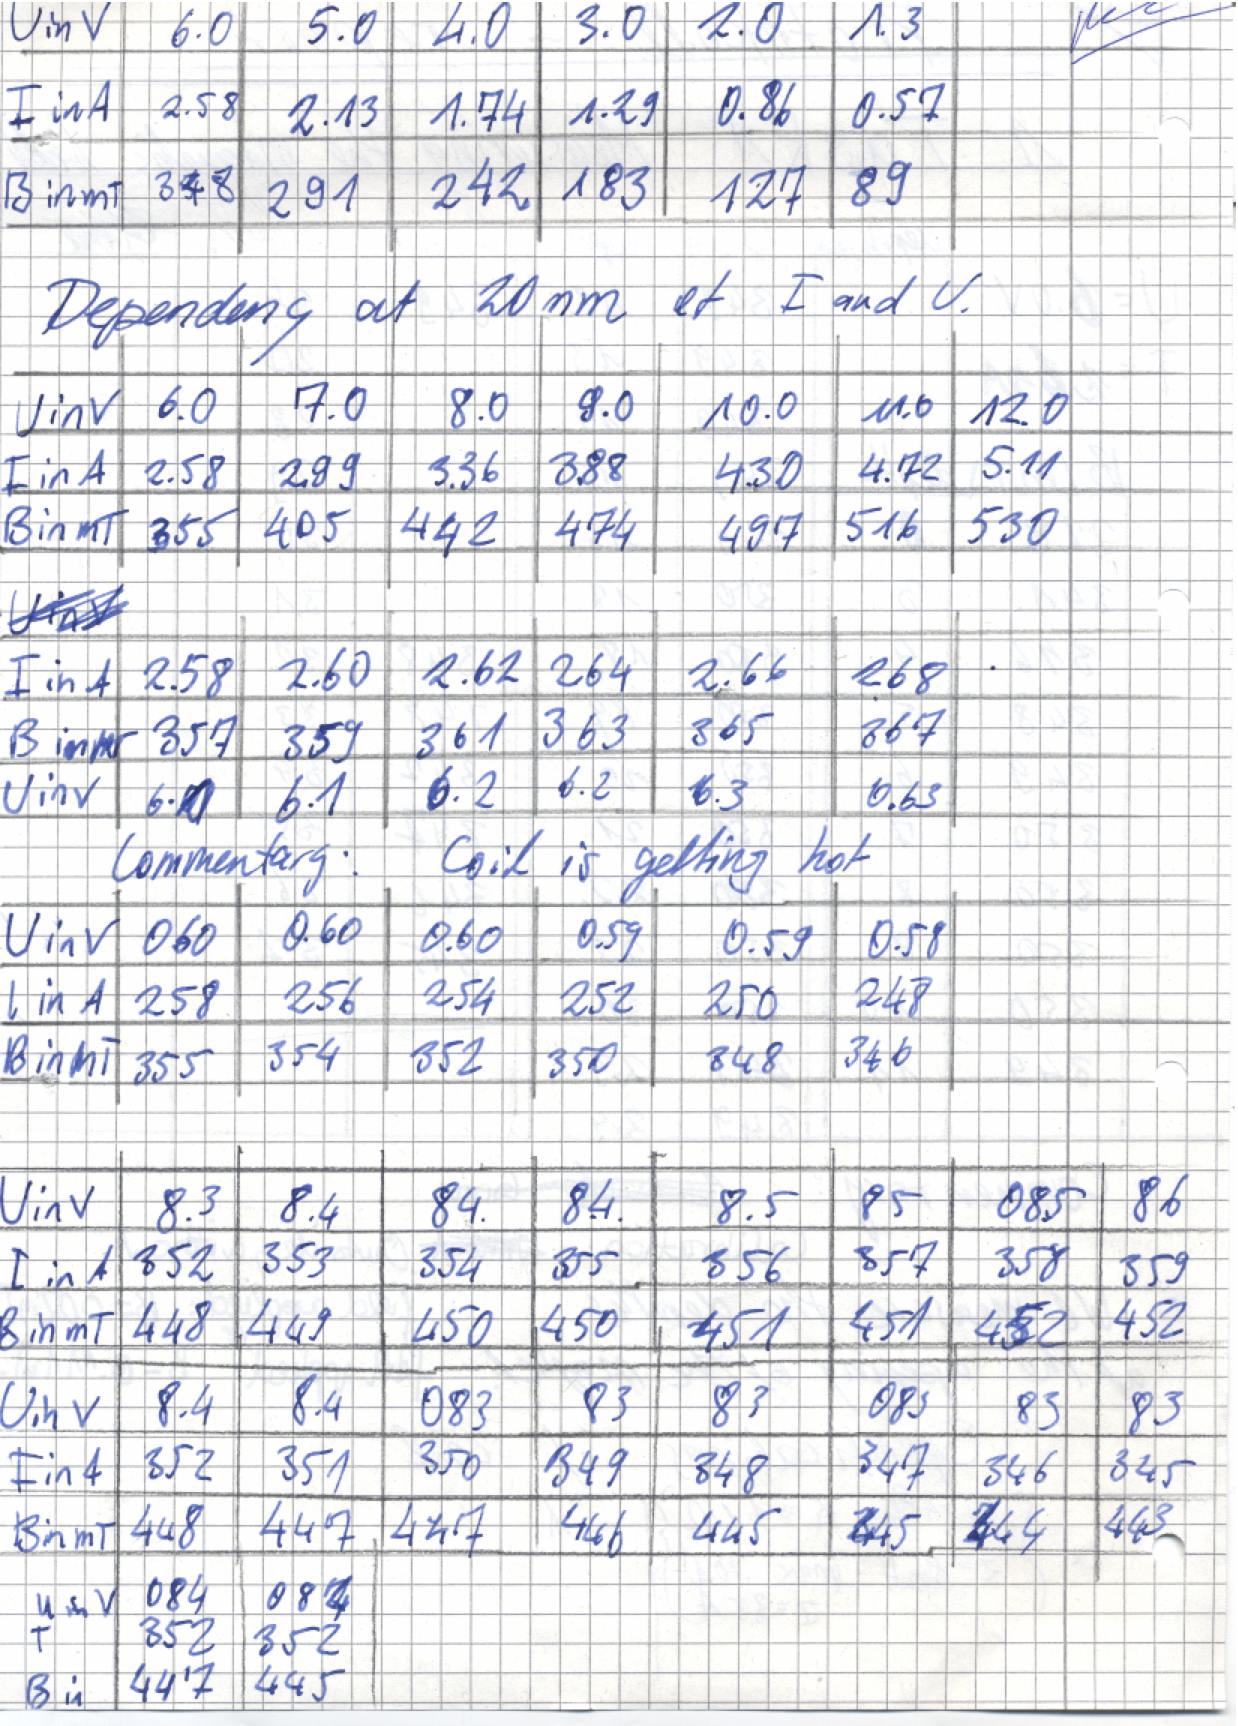 U in V 6.0 5.0 4.0 3.0 2.0 1.3
I in A 2.58 2.13 1.74 1.29 0.86 0.57
B in mT 348 291 242 183 127 89
Dependency at 20mm of I and U.
U in V 6.0 7.0 8.0 9.0 10.0 11.0 12.0
I in A 2.58 2.99 3.36 3.88 4.30 4.72 5.11
B in mT 355 405 442 474 497 516 530
U in V
I in A 2.58 2.60 2.62 264 2.66 268
B in mT 357 359 361 363 365 367
U in V 6.1 6.2 6.2 6.3 0.63
Commentary: Coil is getting hot
U in V 060 0.60 0.60 0.59 0.59 0.58
I in A 258 256 254 252 250 248
B in mT 355 354 352 350 348 346
U in V 8.3 8.4 84. 84. 8.5 85 085 86
I in A 352 353 354 355 356 357 358 359
B in mT 448 449 450 450 451 451 452 452
U in V 8.4 8.4 083 83 83 083 83 83
I in A 352 351 350 349 348 347 346 345
B in mT 448 447 447 446 445 445 444 443
U in V 084 084
I 352 352
B in 447 445